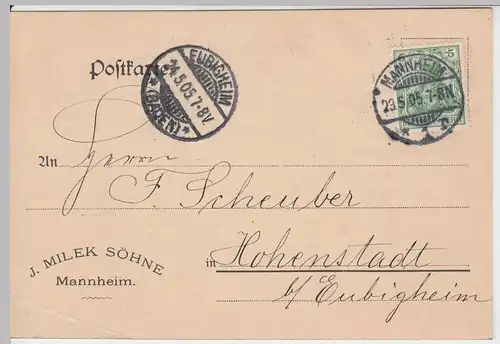 Postkarte
EUBIGHEIM
24.5.05.7-8V.
(BADEN)
5
MANNHEIM
23.5.05.7-8N.
* 1 c
An Herrn
F. Scheuber
J. MILEK SÖHNE
Mannheim.
in Hohenstadt
b/ Eubigheim